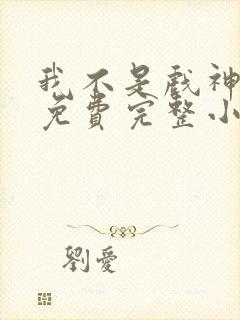 我不是戲神
免費完整小
劉愛